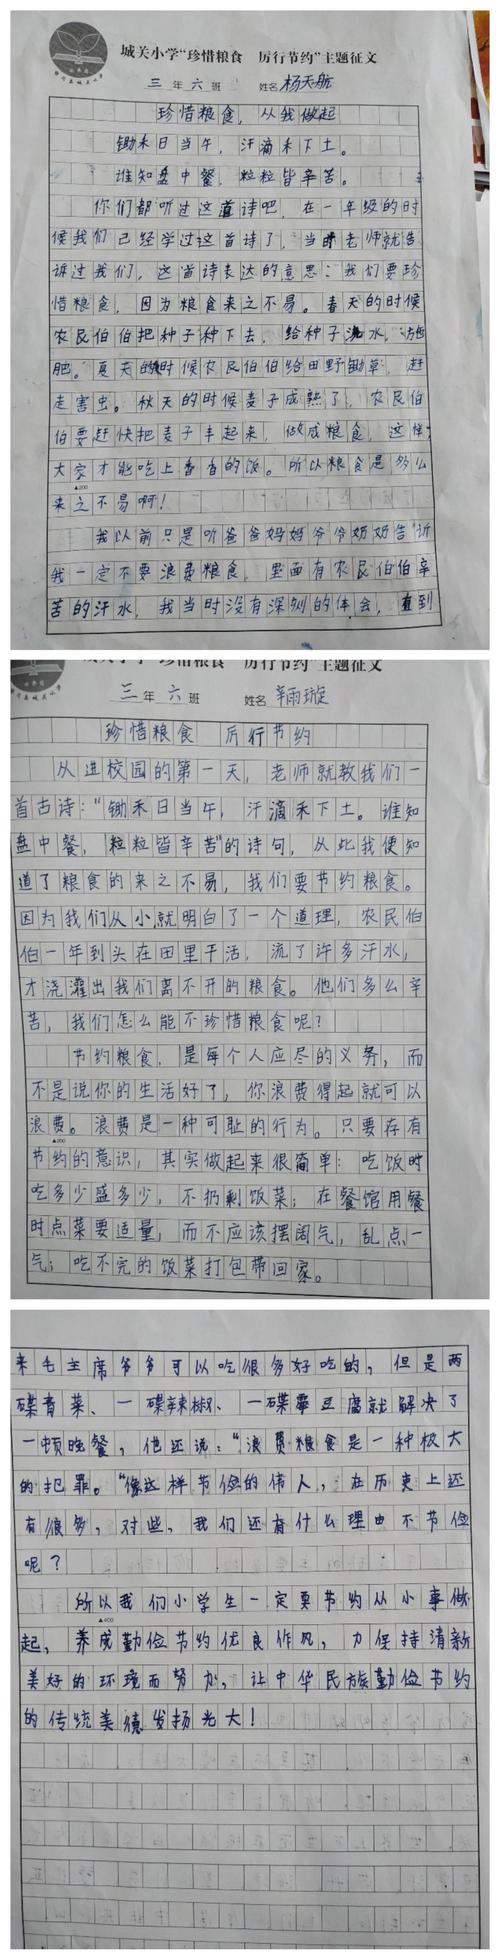 城关小学“珍惜粮食　厉行节约”主题征文
三年六班　姓名杨天航
珍惜粮食，从我做起
锄禾日当午，汗滴禾下土。
谁知盘中餐，粒粒皆辛苦。
你们都听过这首诗吧，在一年级的时
候我们已经学过这首诗了，当时老师就告
诉过我们，这首诗表达的意思：我们要珍
惜粮食，因为粮食来之不易。春天的时候
农民伯伯把种子种下去，给种子浇水，施
肥。夏天的时候农民伯伯给田野锄草，赶
走害虫。秋天的时候麦子成熟了，农民伯
伯要赶快把麦子丰起来，做成粮食，这样
大家才能吃上香香的饭。所以粮食是多么
▲200
来之不易啊！
我以前只是听爸爸妈妈爷爷奶奶告诉
我一定不要浪费粮食，里面有农民伯伯辛
苦的汗水，我当时没有深刻的体会，直到
“珍惜粮食　厉行节约”主题征文
三年六班　姓名辛雨璇
珍惜粮食　厉行节约
从进校园的第一天，老师就教我们一
首古诗：“锄禾日当午，汗滴禾下土。谁知
盘中餐，粒粒皆辛苦”的诗句，从此我便知
道了粮食的来之不易，我们要节约粮食。
因为我们从小就明白了一个道理，农民伯
伯一年到头在田里干活，流了许多汗水，
才浇灌出我们离不开的粮食。他们多么辛
苦，我们怎么能不珍惜粮食呢？
节约粮食，是每个人应尽的义务，而
不是说你的生活好了，你浪费得起就可以
浪费。浪费是一种可耻的行为。只要存有
▲200
节约的意识，其实做起来很简单：吃饭时
吃多少盛多少，不扔剩饭菜；在餐馆用餐
时点菜要适量，而不应该摆阔气，乱点一
气；吃不完的饭菜打包带回家。
来毛主席爷爷可以吃很多好吃的，但是两
碟青菜、一碟辣椒、一碟霉豆腐就解决了
一顿晚餐，他还说：“浪费粮食是一种极大
的犯罪。“像这样节俭的伟人，在历史上还
有很多，对些，我们还有什么理由不节俭
呢？
所以我们小学生一定要节约从小事做
▲400
起，养成勤俭节约优良作风，力保持清新
美好的环境而努力，让中华民族勤俭节约
的传统美德发扬光大！